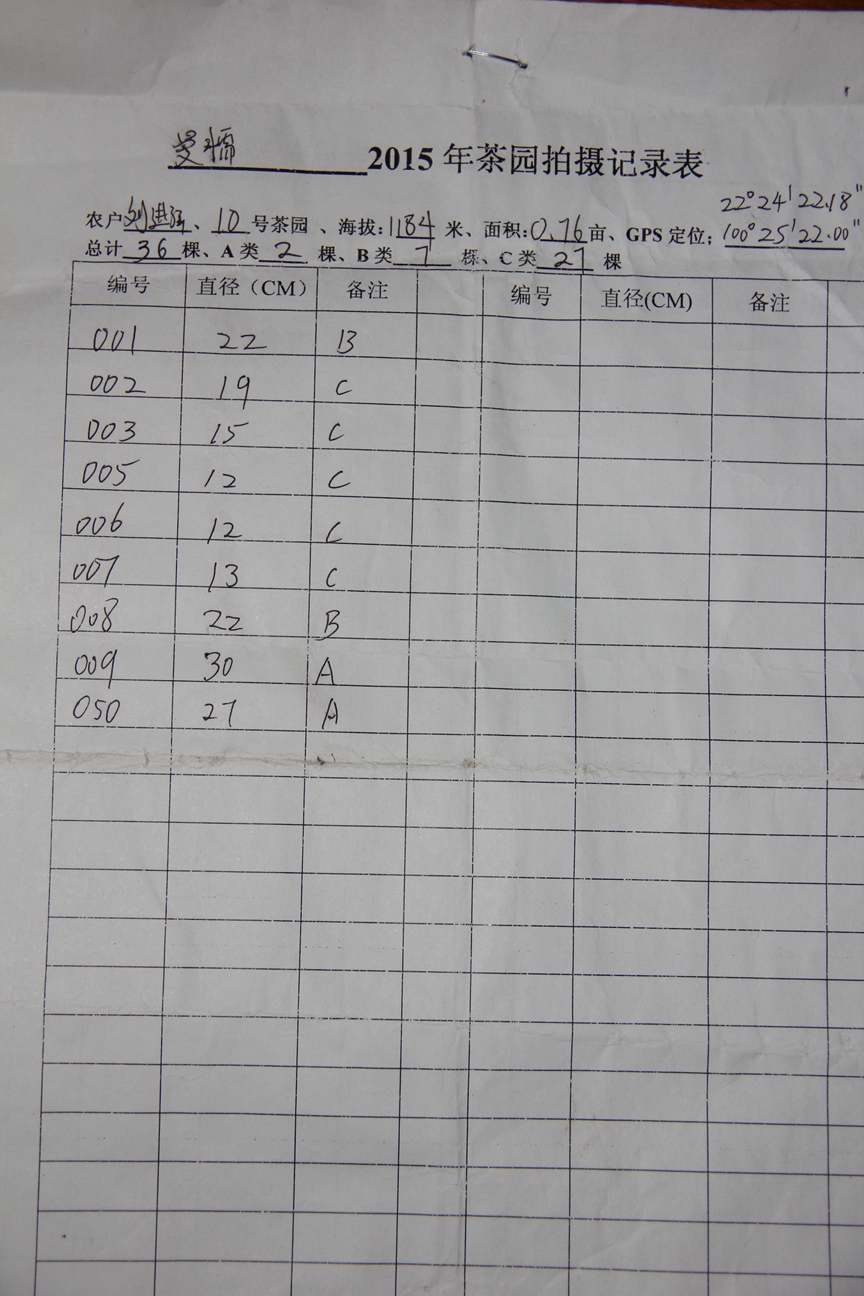 曼糯 2015 年茶园拍摄记录表
22°24'22.18"
农户刘进红、10 号茶园 、海拔:1184 米、面积:0.76亩、GPS 定位；100°25'22.00"
总计 36 棵、A 类 2 棵、B 类 7 棵、C 类 27 棵
编号 直径（CM） 备注 编号 直径(CM) 备注
001 22 B
002 19 C
003 15 C
005 12 C
006 12 C
007 13 C
008 22 B
009 30 A
050 27 A